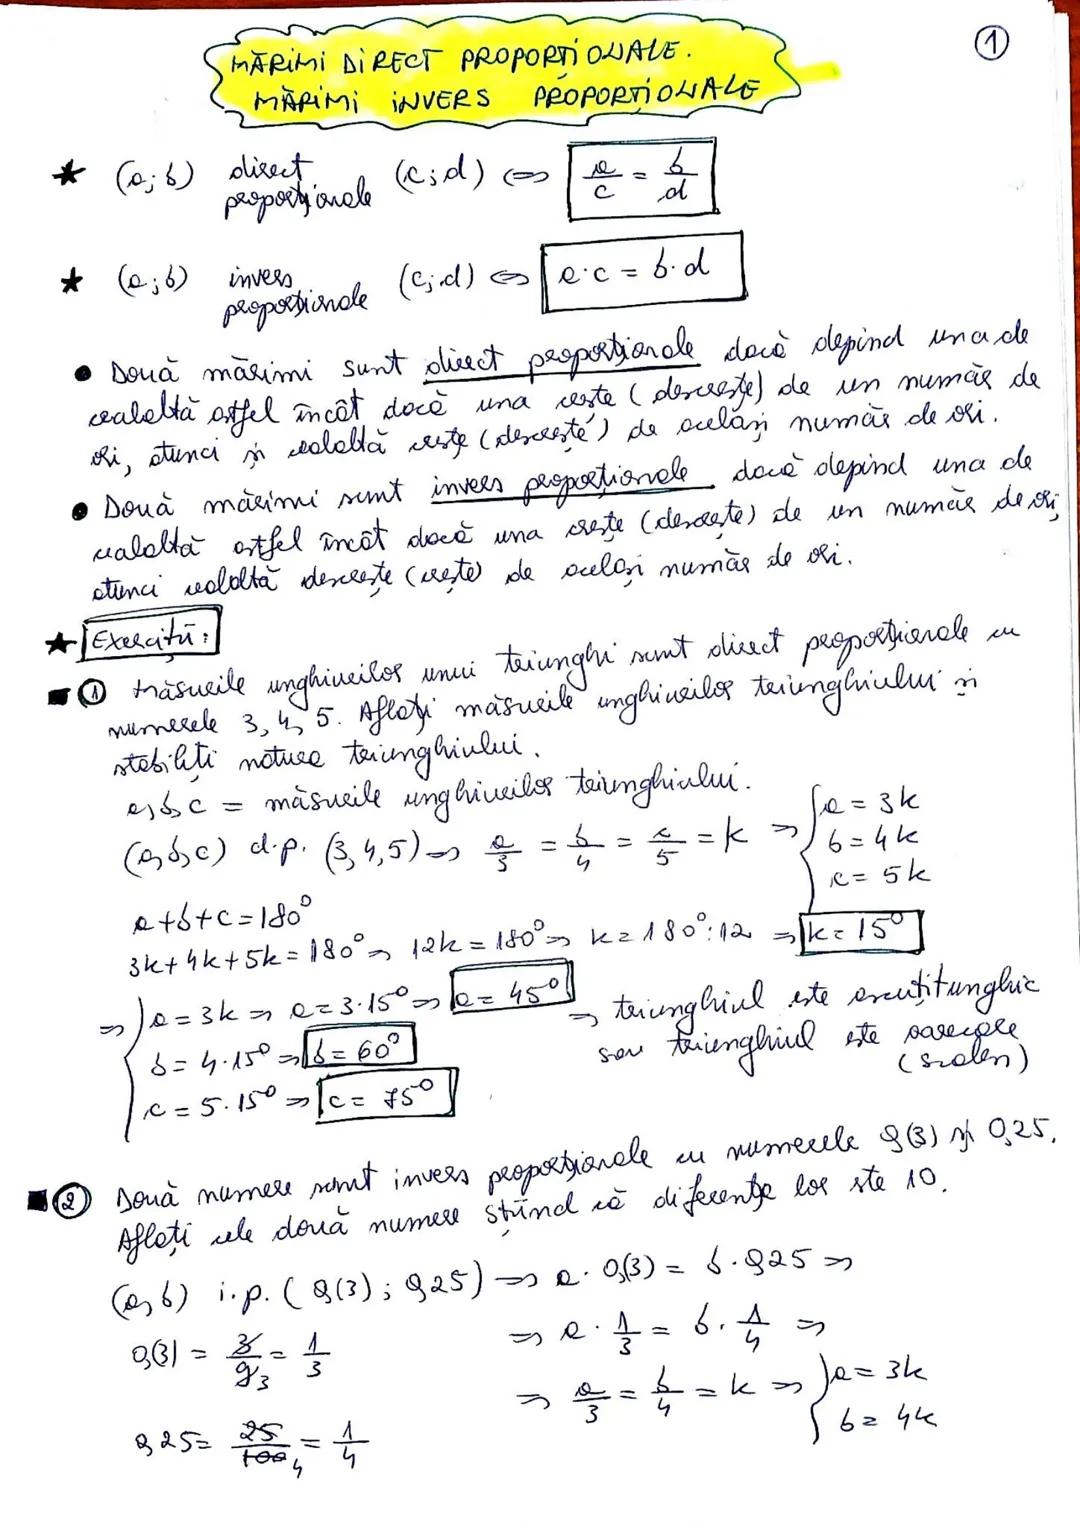 1
MĂRIMI DIRECT PROPORȚIONALE.
MĂRIMI INVERS PROPORȚIONALE
★ (a; b) direct proporționale (c; d) ⇔ a/c = b/d
★ (a; b) invers proporționale (c; d) ⇔ a·c = b·d
• Două mărimi sunt direct proporționale dacă depind una de
cealaltă astfel încât dacă una crește (descrește) de un număr de
ori, atunci și cealaltă crește (descrește) de același număr de ori.
• Două mărimi sunt invers proporționale dacă depind una de
cealaltă astfel încât dacă una crește (descrește) de un număr de ori,
atunci cealaltă descrește (crește) de același număr de ori.
★ Exerciții:
1 Măsurile unghiurilor unui triunghi sunt direct proporționale cu
numerele 3, 4, 5. Aflați măsurile unghiurilor triunghiului și
stabiliți natura triunghiului.
a, b, c = măsurile unghiurilor triunghiului.
(a, b, c) d.p. (3, 4, 5) ⇒ a/3 = b/4 = c/5 = k ⇒ { a = 3k
b = 4k
c = 5k
a+b+c = 180°
3k+4k+5k = 180° ⇒ 12k = 180° ⇒ k = 180°:12 ⇒ k = 15°
⇒ { a = 3k ⇒ a = 3·15° ⇒ a = 45° ⇒ triunghiul este ascuțitunghic
b = 4·15° ⇒ b = 60° sau triunghiul este oarecare
(scalen)
c = 5·15° ⇒ c = 75°
2 Două numere sunt invers proporționale cu numerele 0,(3) și 0,25.
Aflați cele două numere știind că diferența lor este 10.
(a, b) i.p. (0,(3); 0,25) ⇒ a·0,(3) = b·0,25 ⇒
0,(3) = 3/9 3 = 1/3 ⇒ a·1/3 = b·1/4 ⇒
⇒ a/3 = b/4 = k ⇒ { a = 3k
b = 4k
0,25 = 25/100 4 = 1/4